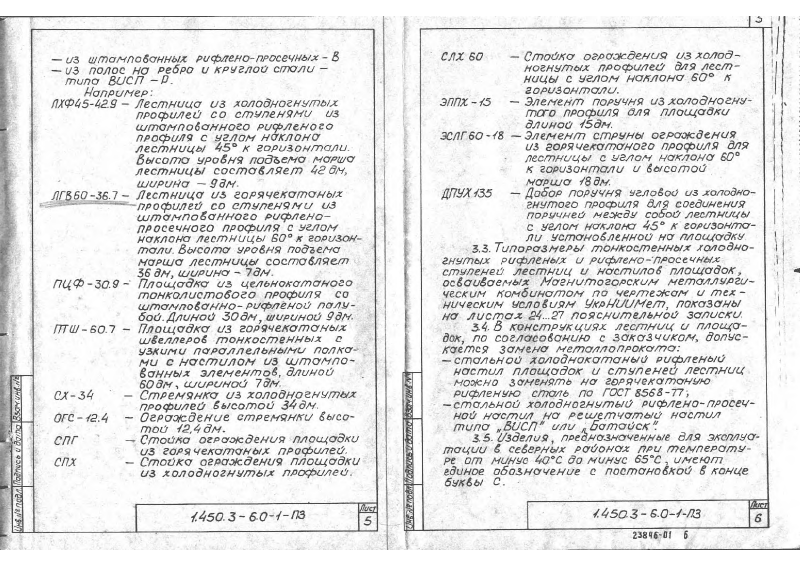 – из штампованных рифлено-просечных – В
– из полос на ребро и круглой стали –
типа ВИСП – Р.
Например:
ЛХФ45-42.9 – Лестница из холодногнутых
профилей со ступенями из
штампованного рифленого
профиля с углом наклона
лестницы 45° к горизонтали.
Высота уровня подъема марша
лестницы составляет 42 дм,
ширина – 9 дм.
ЛГВ60-36.7 – Лестница из горячекатаных
профилей со ступенями из
штампованного рифлено-
просечного профиля с углом
наклона лестницы 60° к горизон-
тали. Высота уровня подъема
марша лестницы составляет
36 дм, ширина – 7 дм.
ПЦФ-30.9 – Площадка из цельнокатаного
тонколистового профиля со
штампованно-рифленой палу-
бой. Длиной 30 дм, шириной 9 дм.
ПТШ-60.7 – Площадка из горячекатаных
швеллеров тонкостенных с
узкими параллельными полка-
ми с настилом из штампо-
ванных элементов, длиной
60 дм, шириной 7 дм.
СХ-34 – Стремянка из холодногнутых
профилей высотой 34 дм.
ОГС-12.4 – Ограждение стремянки высо-
той 12,4 дм.
СПГ – Стойка ограждения площадки
из горячекатаных профилей.
СПХ – Стойка ограждения площадки
из холодногнутых профилей.
Инв. № подл. Подпись и дата Взам. инв. №
1.450.3-6.0-1-ПЗ
Лист
5
СЛХ 60 – Стойка ограждения из холод-
ногнутых профилей для лест-
ницы с углом наклона 60° к
горизонтали.
ЭППХ-15 – Элемент поручня из холодногну-
того профиля для площадки
длиной 15 дм.
ЭСЛГ60-18 – Элемент струны ограждения
из горячекатаного профиля для
лестницы с углом наклона 60°
к горизонтали и высотой
марша 18 дм.
ДПУХ135 – Добор поручня угловой из холодно-
гнутого профиля для соединения
поручней между собой лестницы
с углом наклона 45° к горизонта-
ли установленной на площадку.
3.3. Типоразмеры тонкостенных холодно-
гнутых рифленых и рифлено-просечных
ступеней лестниц и настилов площадок,
осваиваемых Магнитогорским металлурги-
ческим комбинатом по чертежам и тех-
ническим условиям УкрНИИМет, показаны
на листах 24...27 пояснительной записки.
3.4. В конструкциях лестниц и площа-
док, по согласованию с заказчиком, допус-
кается замена металлопроката:
– стальной холоднокатаный рифленый
настил площадок и ступеней лестниц
можно заменять на горячекатаную
рифленую сталь по ГОСТ 8568-77;
– стальной холодногнутый рифлено-просеч-
ной настил на решетчатый настил
типа „ВИСП" или „Батайск".
3.5. Изделия, предназначенные для эксплуа-
тации в северных районах при температу-
ре от минус 40°С до минус 65°С, имеют
единое обозначение с постановкой в конце
буквы С.
Инв. № подл. Подпись и дата Взам. инв. №
1.450.3-6.0-1-ПЗ
Лист
6
23896-01 6